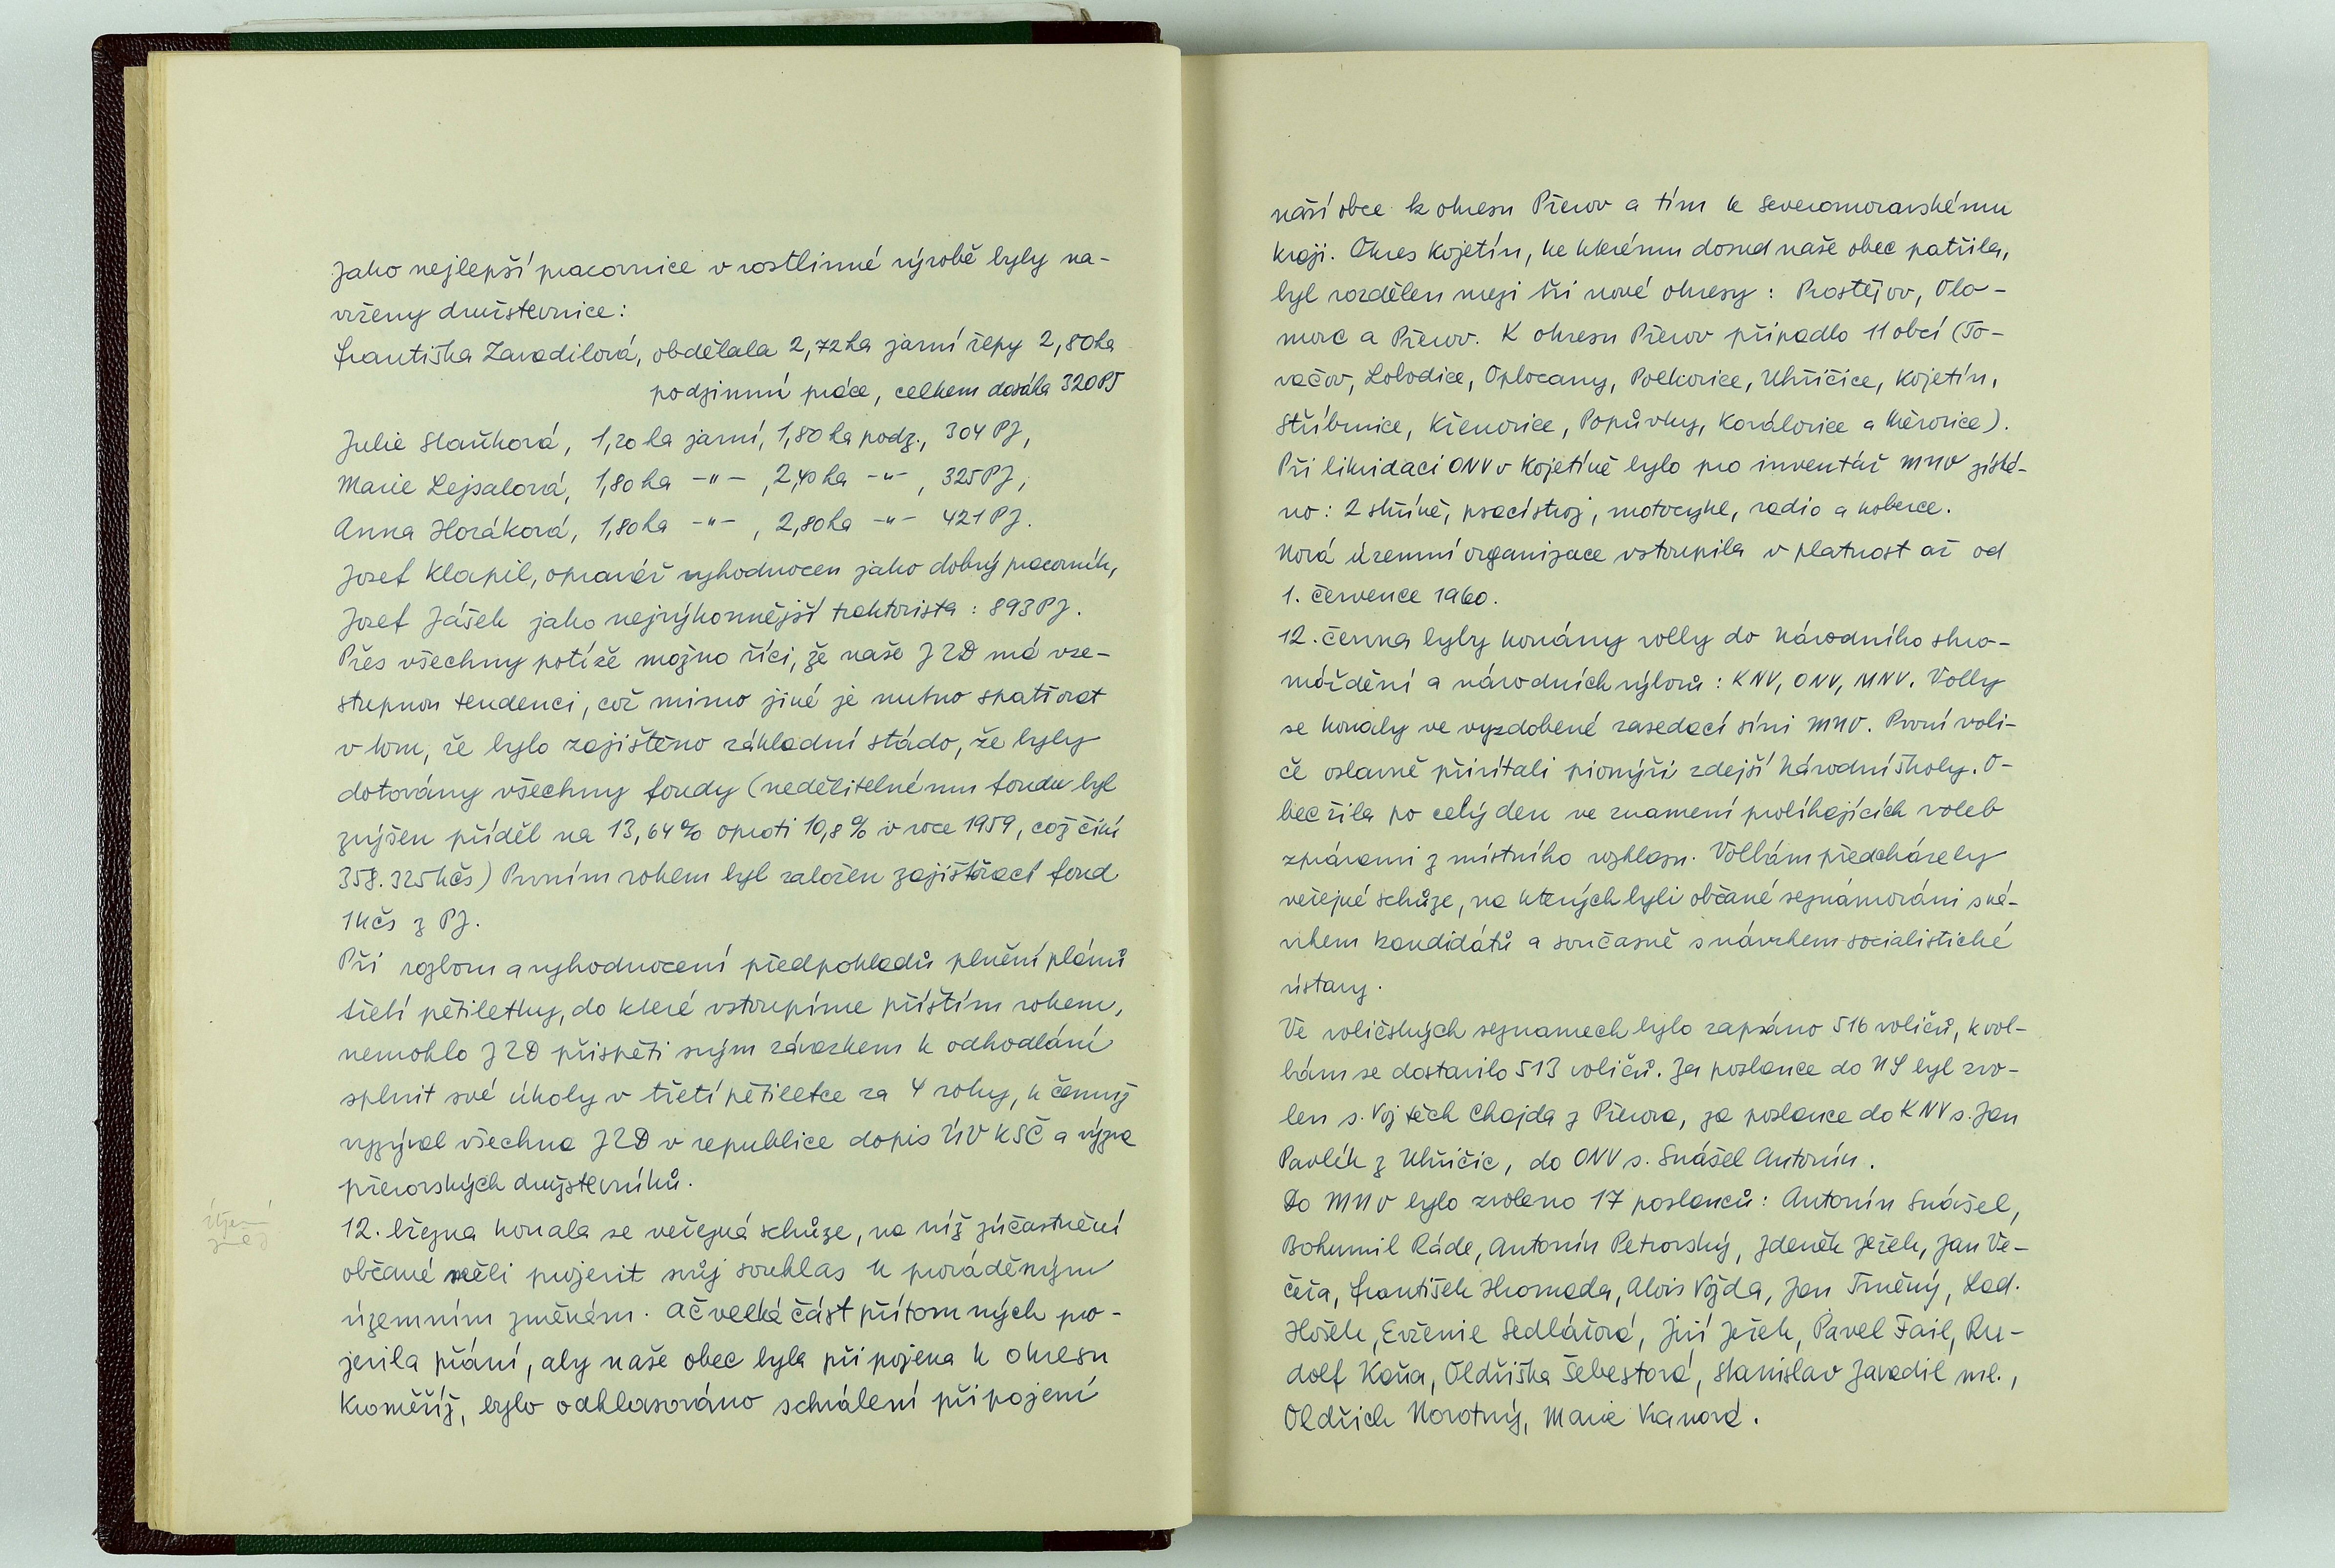 Jako nejlepší pracovnice v rostlinné výrobě byly na-
vrženy družstevnice:
Františka Zavadilová, obdělala 2,72 ha jarní řepy 2,80 ha
podzimní práce, celkem dosáhla 320 PJ
Julie Slaříková, 1,20 ha jarní, 1,80 ha podz., 304 PJ,
Marie Lejsalová, 1,80 ha -"-, 2,40 ha -"-, 325 PJ,
Anna Horáková, 1,80 ha -"-, 2,80 ha -"- 421 PJ.
Josef Klapil, opravář vyhodnocen jako dobrý pracovník,
Josef Jášek jako nejvýkonnější traktorista: 893 PJ.
Přes všechny potíže možno říci, že naše JZD má vze-
stupnou tendenci, což mimo jiné je nutno spatřovat
v tom, že bylo zajištěno základní stádo, že byly
dotovány všechny fondy (nedělitelnému fondu byl
zvýšen příděl na 13,64% oproti 10,8% v roce 1959, což činí
358.325 Kčs) Prvním rokem byl založen zajišťovací fond
1 Kčs z PJ.
Při rozboru a vyhodnocení předpokladů plnění plánů
třetí pětiletky, do které vstoupíme příštím rokem,
nemohlo JZD přispěti svým závazkem k odhodlání
splnit své úkoly v třetí pětiletce za 4 roky, k čemuž
vyzýval všechna JZD v republice dopis ÚV KSČ a výzva
přerovských družstevníků.
12. března konala se veřejná schůze, na níž zúčastnění
občané měli projevit svůj souhlas k prováděným
územním změnám. Ač velká část přítomných pro-
jevila přání, aby naše obec byla připojena k okresu
Kroměříž, bylo odhlasováno schválení připojení
naší obce k okresu Přerov a tím k Severomoravskému
kraji. Okres Kojetín, ke kterému dosud naše obec patřila,
byl rozdělen mezi tři nové okresy: Prostějov, Olo-
mouc a Přerov. K okresu Přerov připadlo 11 obcí (To-
vačov, Lobodice, Oplocany, Polkovice, Uhřičice, Kojetín,
Stříbrnice, Křenovice, Popůvky, Kovalovice a Měrovice).
Při likvidaci ONV v Kojetíně bylo pro inventář MNV získá-
no: 2 skříně, psací stroj, motocykl, radio a koberce.
Nová územní organizace vstoupila v platnost až od
1. července 1960.
12. června byly konány volby do Národního shro-
máždění a národních výborů: KNV, ONV, MNV. Volby
se konaly ve vyzdobené zasedací síni MNV. První voli-
če oslavně přivítali pionýři zdejší Národní školy. O-
bec žila po celý den ve znamení probíhajících voleb
zprávami z místního rozhlasu. Volbám předcházely
veřejné schůze, na kterých byli občané seznamováni s ná-
vrhem kandidátů a současně s návrhem socialistické
ústavy.
Ve voličských seznamech bylo zapsáno 516 voličů, k vol-
bám se dostavilo 513 voličů. Za poslance do NS byl zvo-
len s. Vojtěch Chajda z Přerova, za poslance do KNV s. Jan
Pavlík z Uhřičic, do ONV s. Snášel Antonín.
Do MNV bylo zvoleno 17 poslanců: Antonín Snášel,
Bohumil Ráde, Antonín Petrovský, Zdeněk Ježek, Jan Ve-
čeřa, František Hromada, Alois Vojda, Jan Trněný, Lad.
Hošek, Evženie Sedlářová, Jiří Ježek, Pavel Fail, Ru-
dolf Kaňa, Oldřiška Šebestová, Stanislav Zavadil ml.,
Oldřich Novotný, Marie Vranová.